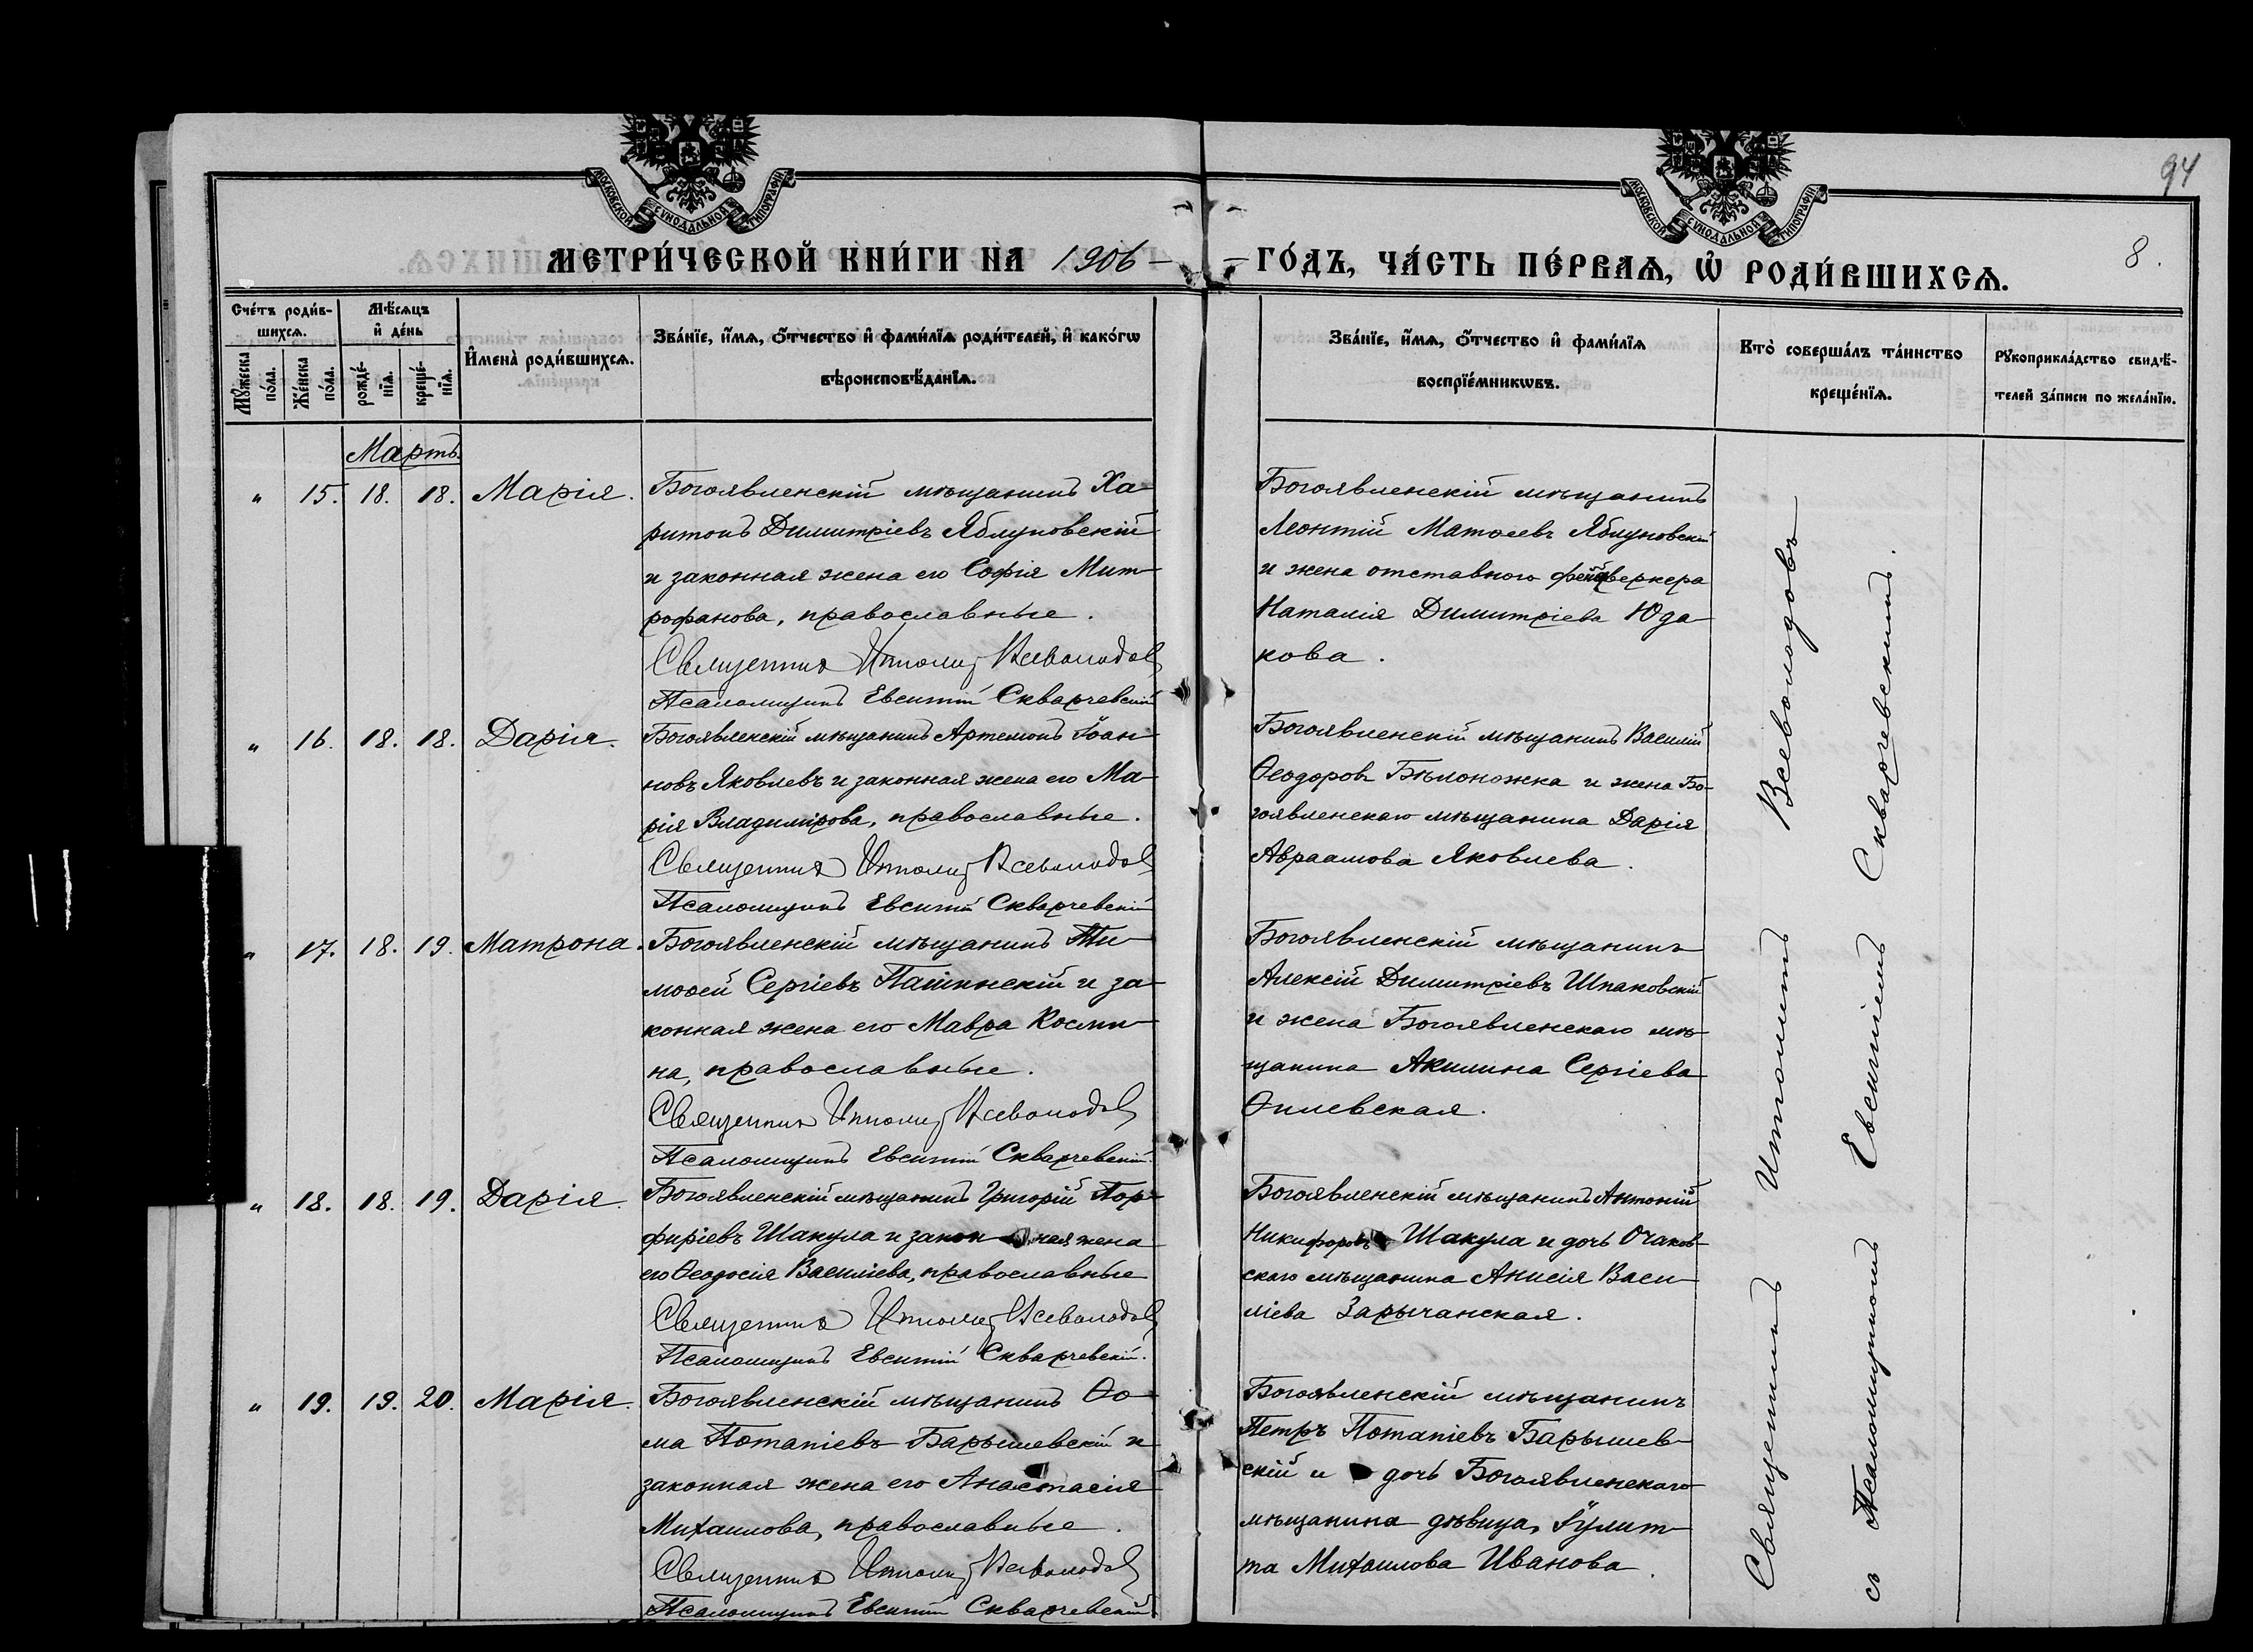 94
МОСКОВСКОЙ СѴНОДАЛЬНОЙ ТИПОГРАФІИ
МОСКОВСКОЙ СѴНОДАЛЬНОЙ ТИПОГРАФІИ
МЕТРИ́ЧЕСКОЙ КНИ́ГИ НА 1906 ГО́ДЪ, ЧА́СТЬ ПЕ́РВАѦ, Ѡ҆ РОДИ́ВШИХСѦ.
8.
Сче́тъ роди́в-
шихсѧ.
Мꙋ́жеска по́ла.
Же́нска по́ла.
Мѣ́сѧцъ
и҆ де́нь
рожде́-
нїѧ.
креще́-
нїѧ.
И҆мена̀ роди́вшихсѧ.
Зва́нїе, и҆́мѧ, ѻ҆́тчество и҆ фами́лїѧ роди́телей, и҆ како́гѡ
вѣроисповѣ́данїѧ.
Зва́нїе, и҆́мѧ, ѻ҆́тчество и҆ фами́лїѧ
воспрїе́мникѡвъ.
Кто̀ соверша́лъ та́инство
креще́нїѧ.
Рꙋкоприкла́дство свидѣ́-
телей за́писи по жела́нїю.
Мартъ.
" 15. 18. 18. Марія.
Богоявленскій мѣщанинъ Ха-
ритонъ Димитріевъ Яблуновскій
и законная жена его Софія Мит-
рофанова, православные.
Священникъ Ипполитъ Всеволодовъ
Псаломщикъ Евсигній Скварчевскій
Богоявленскій мѣщанинъ
Леонтій Матѳеевъ Яблуновскій
и жена отставного фейерверкера
Наталія Димитріева Юда-
кова.
" 16. 18. 18. Дарія.
Богоявленскій мѣщанинъ Артемонъ Іоан-
новъ Яковлевъ и законная жена его Ма-
рія Владимірова, православные.
Священникъ Ипполитъ Всеволодовъ
Псаломщикъ Евсигній Скварчевскій
Богоявленскій мѣщанинъ Василій
Ѳеодоровъ Бѣлоножка и жена Бо-
гоявленскаго мѣщанина Дарія
Авраамова Яковлева.
" 17. 18. 19. Матрона.
Богоявленскій мѣщанинъ Ти-
моѳей Сергіевъ и за-
конная жена его Мавра Косми-
на, православные.
Священникъ Ипполитъ Всеволодовъ
Псаломщикъ Евсигній Скварчевскій.
Богоявленскій мѣщанинъ
Алексій Димитріевъ Шпаковскій
и жена Богоявленскаго мѣ-
щанина Акилина Сергіева
" 18. 18. 19. Дарія.
Богоявленскій мѣщанинъ Григорій Пор-
фиріевъ Шакула и законная жена
его Ѳеодосія Василіева, православные
Священникъ Ипполитъ Всеволодовъ
Псаломщикъ Евсигній Скварчевскій.
Богоявленскій мѣщанинъ Антоній
Никифоровъ Шакула и дочь Очаков-
скаго мѣщанина Анисія Васи-
ліева Зарычанская.
" 19. 19. 20. Марія.
Богоявленскій мѣщанинъ Ѳо-
ма Потапіевъ Барышевскій и
законная жена его Анастасія
Михаилова, православные.
Священникъ Ипполитъ Всеволодовъ
Псаломщикъ Евсигній Скварчевскій
Богоявленскій мѣщанинъ
Петръ Потапіевъ Барышев-
скій и дочь Богоявленскаго
мѣщанина дѣвица, Іулит-
та Михаилова Иванова.
Священникъ Ипполитъ Всеволодовъ
съ Псаломщикомъ Евсигніемъ Скварчевскимъ.